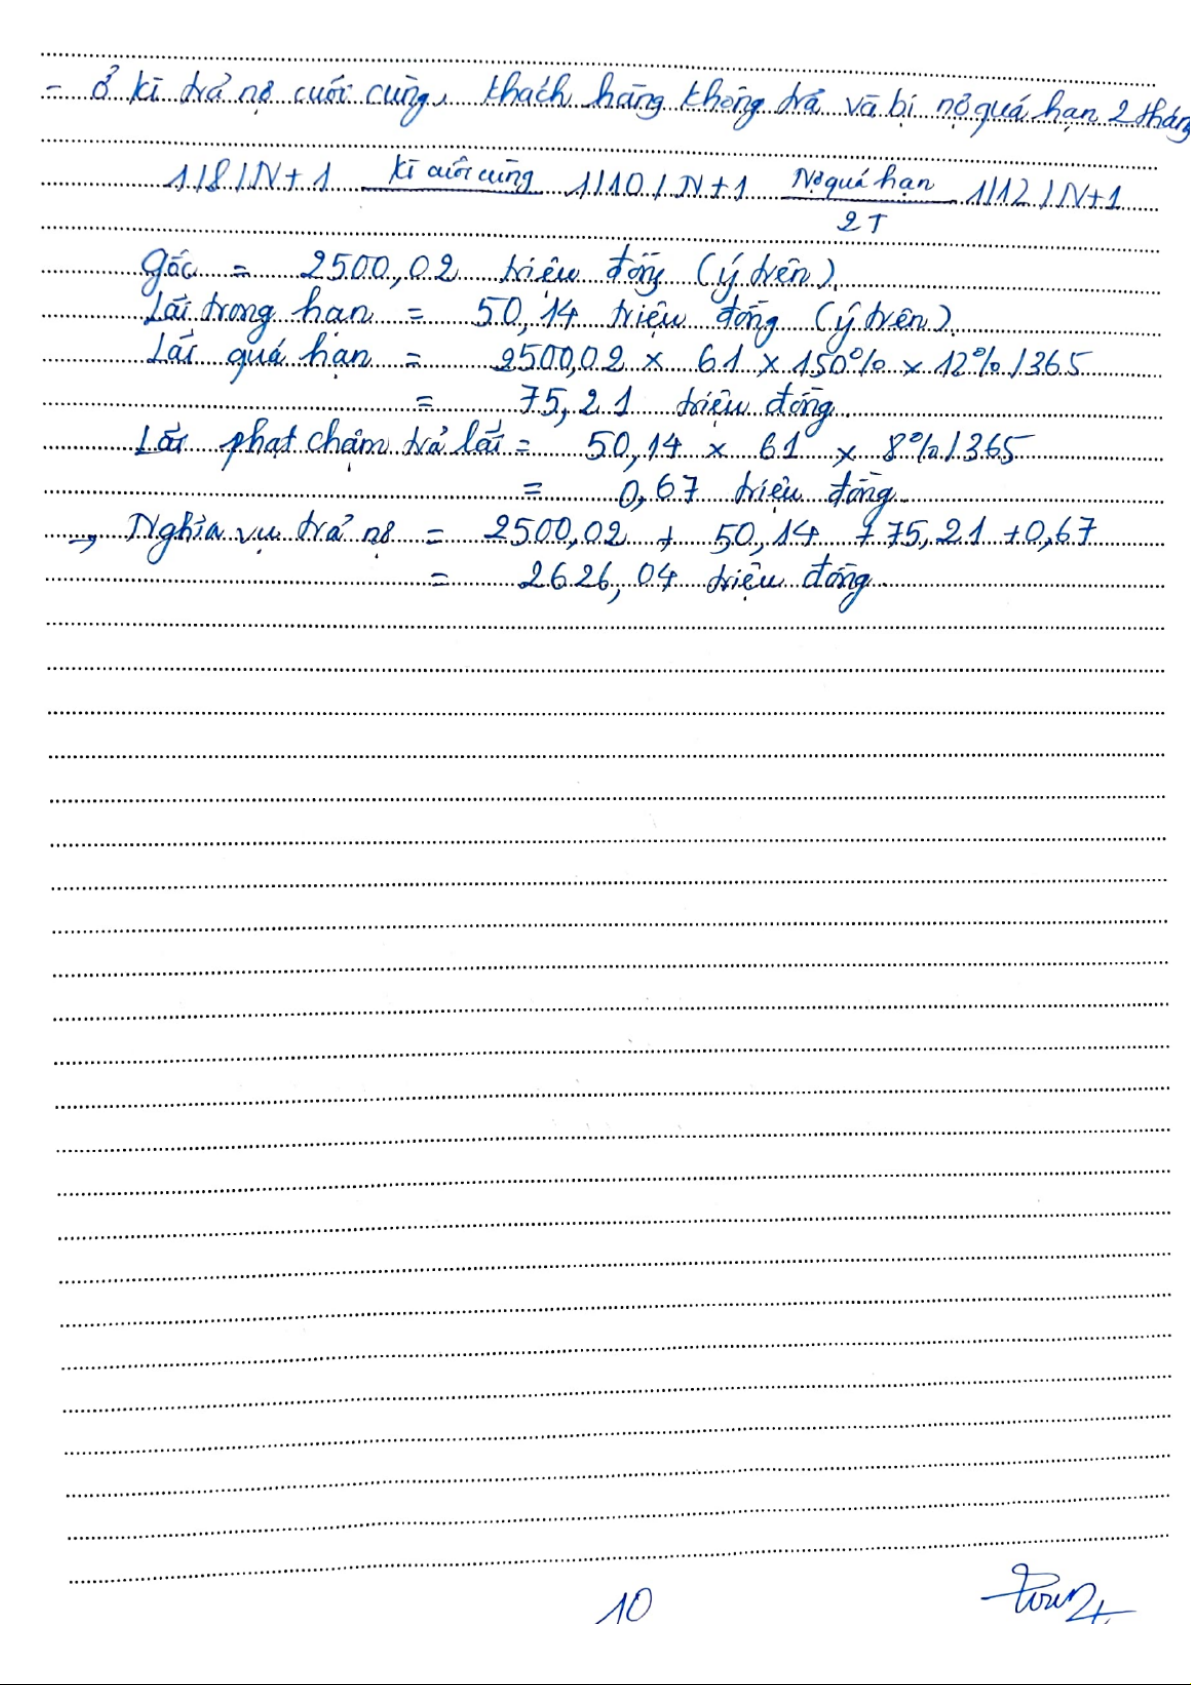 - Ở kì trả nợ cuối cùng, khách hàng không trả và bị nợ quá hạn 2 tháng
1/8/N+1 Kì cuối cùng 1/10/N+1 Nợ quá hạn 1/12/N+1
2T
Gốc = 2500,02 triệu đồng (ý trên).
Lãi trong hạn = 50,14 triệu đồng (ý trên).
Lãi quá hạn = 2500,02 x 61 x 150% x 12%/365
= 75,21 triệu đồng.
Lãi phạt chậm trả lãi = 50,14 x 61 x 8%/365
= 0,67 triệu đồng.
→ Nghĩa vụ trả nợ = 2500,02 + 50,14 + 75,21 + 0,67
= 2626,04 triệu đồng.
10